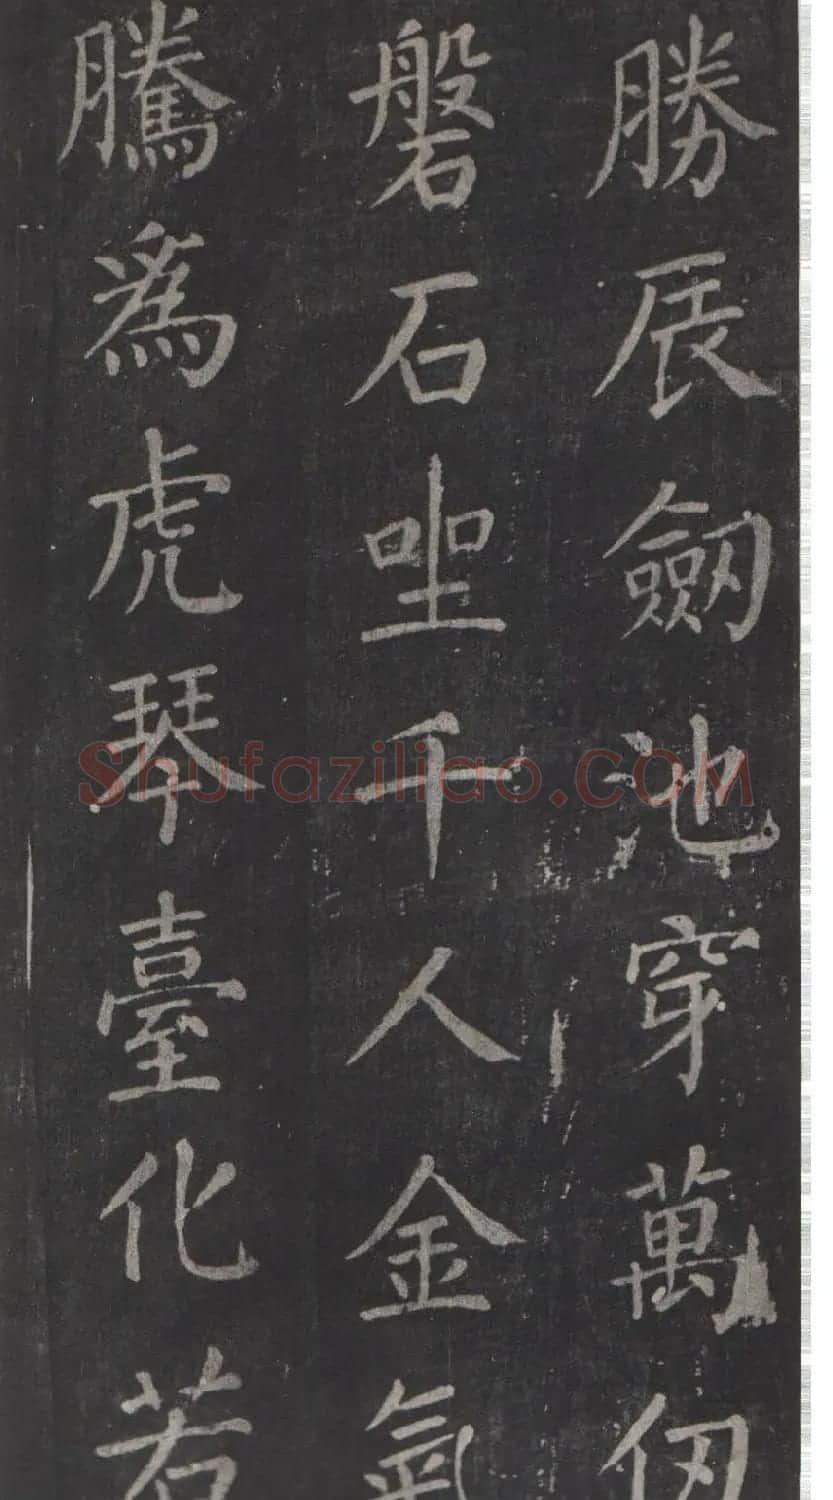 勝辰劒池穿萬仞
磐石坐千人金氣
騰為虎琴臺化若
Shufaziliao.COM